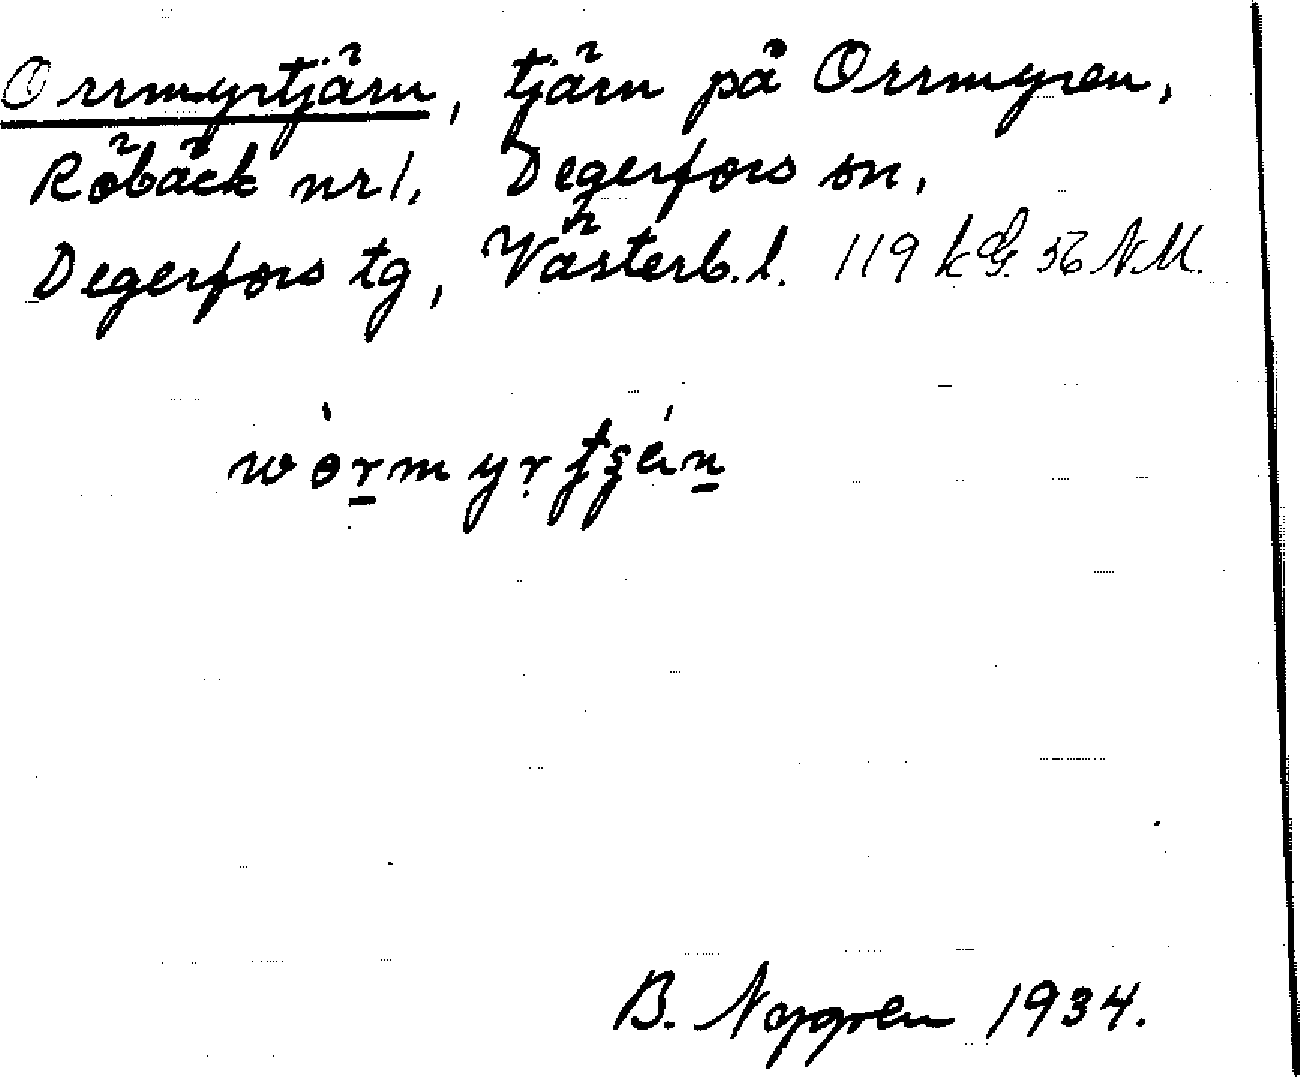 Orrmyrtjärn, tjärn på Orrmyren,
Röbäck nr 1, Degerfors sn,
Degerfors tg, Västerb. l. 119 k 56 N.M.
B. Nygren 1934.